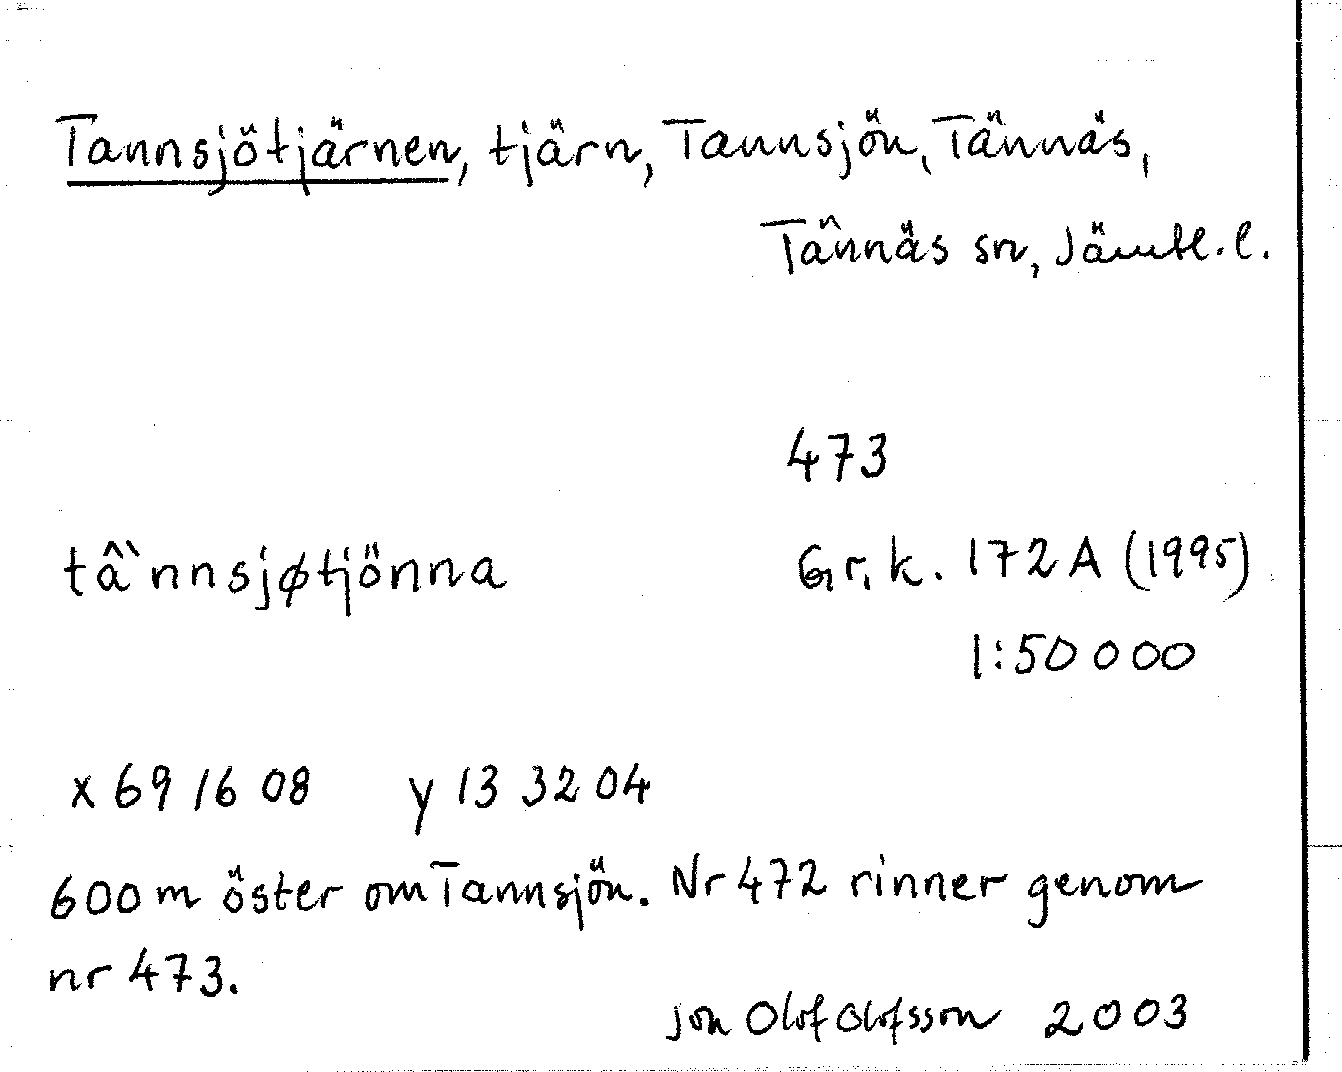 Tannsjötjärnen, tjärn, Tannsjön, Tännäs,
Tännäs sn, Jämtl. l.
473
tâ`nnsjøtjönna
Gr. k. 172A (1995)
1:50 000
x 69 16 08 y 13 32 04
600 m öster om Tannsjön. Nr 472 rinner genom
nr 473.
Jon Olof Olofsson 2003